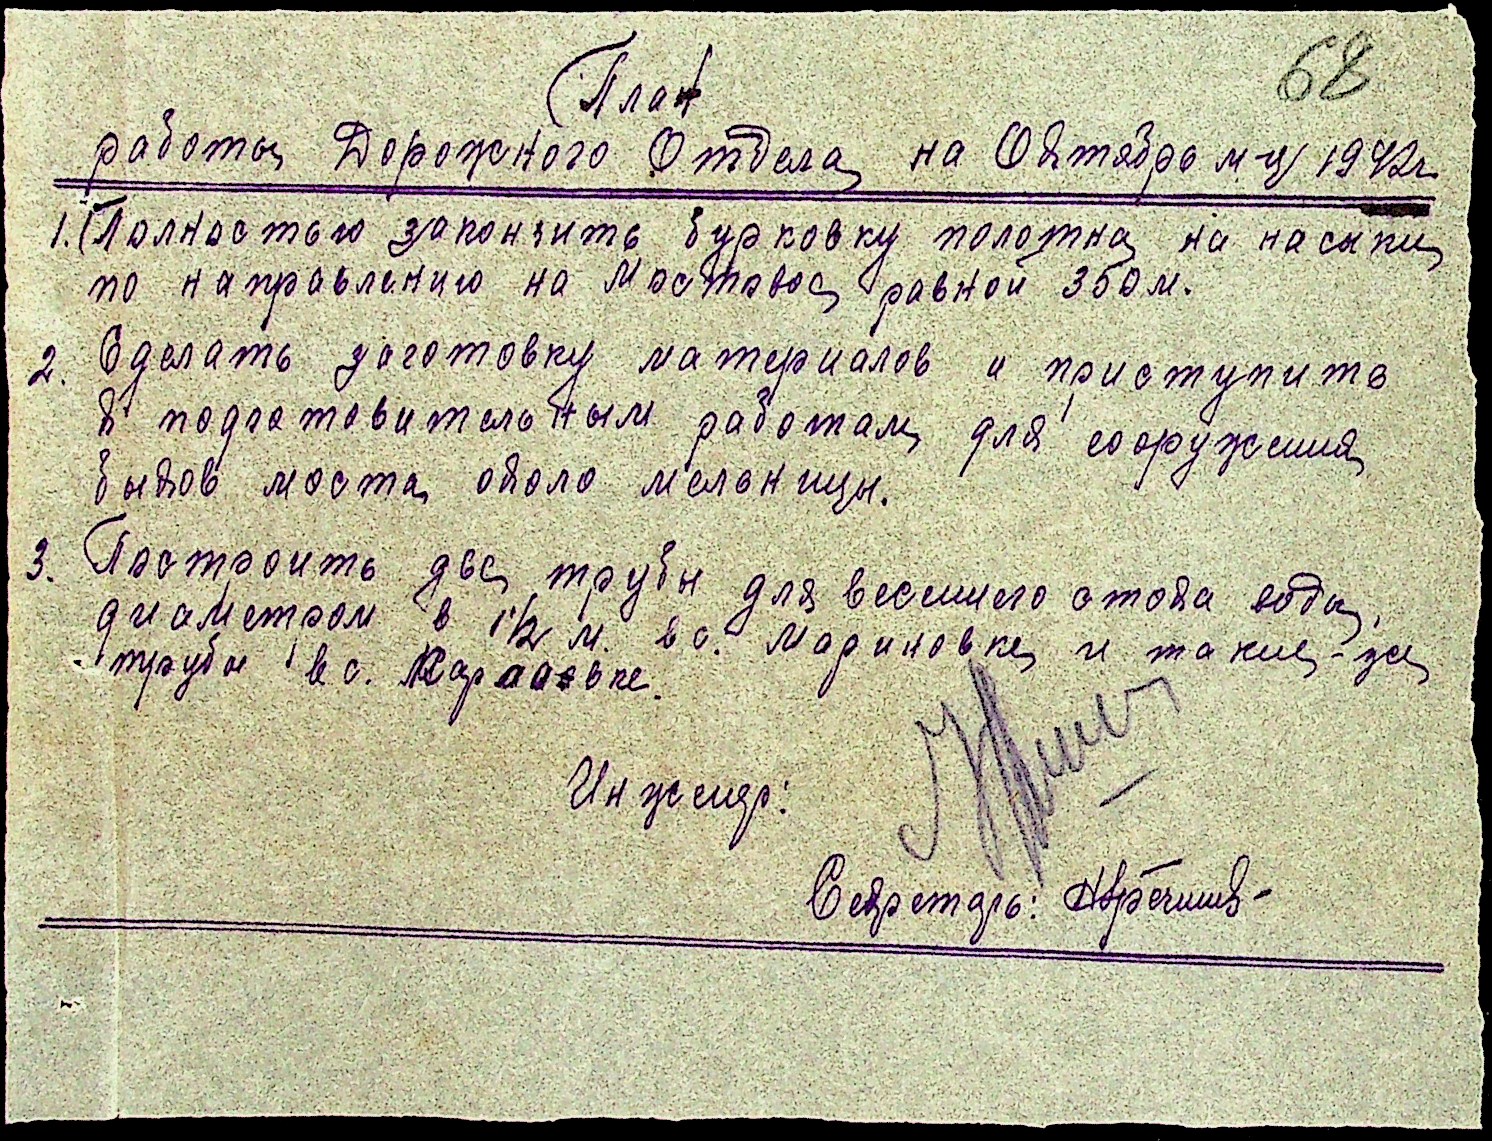 68
План
работы Дорожного Отдела на Октябрь м-ц 1942г.
1. Полностью закончить бурковку полотна на насыпи
по направлению на Мостовое равной 350 м.
2. Сделать заготовку материалов и приступить
к подготовительным работам для сооружения
быков моста около мельницы.
3. Построить две трубы для весеннего стока воды,
диаметром в 1 1/2 м. в с. Мариновке и такие-же
трубы в с.
Инженер:
Секретарь: